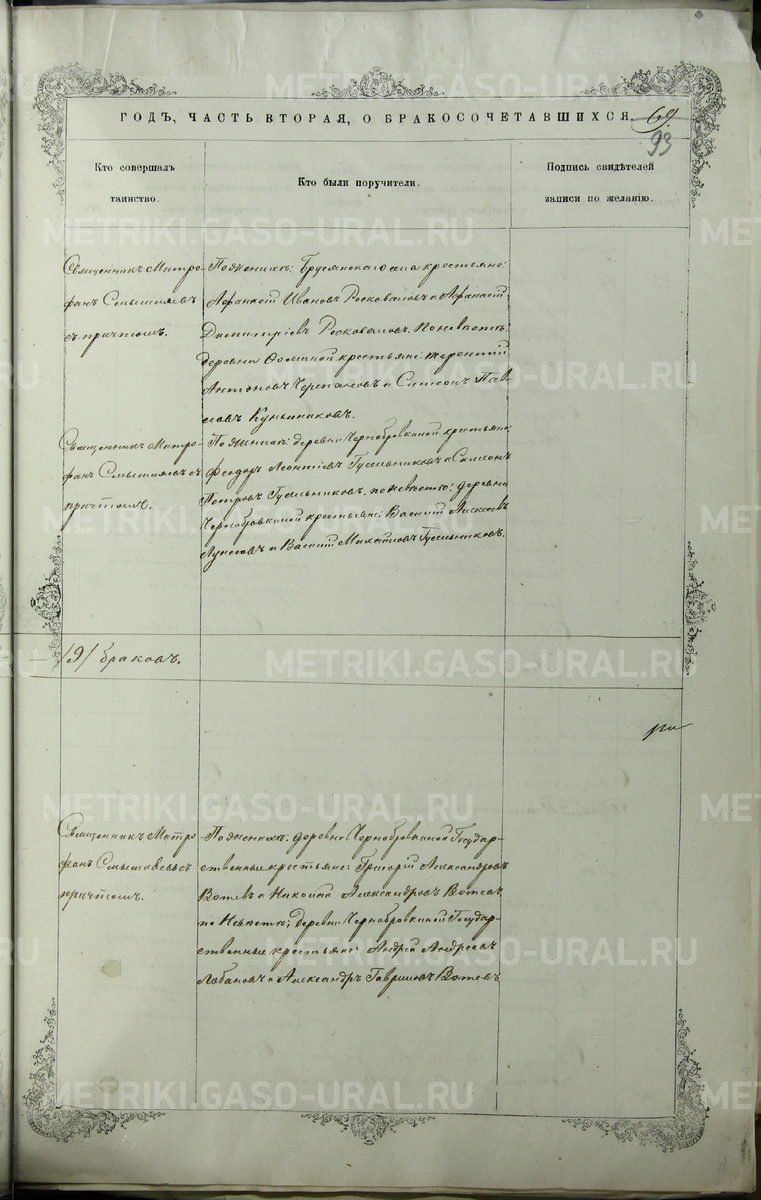 ГОДЪ, ЧАСТЬ ВТОРАЯ, О БРАКОСОЧЕТАВШИХСЯ. 69.
93
Кто совершалъ
таинство.
Кто были поручители.
Подпись свидѣтелей
записи по желанію.
Священникъ Митро-
фанъ Смышляевъ
съ причтомъ.
По женихѣ: Брусянскаго села крестьяне:
Афанасій Ивановъ Росковаловъ и Афанасій
Димитріевъ Росковаловъ. По невѣстѣ:
деревни крестьяне: Терентій
Антоновъ Черепановъ и Симеонъ Пав-
ловъ
Священникъ Митро-
фанъ Смышляевъ съ
причтомъ.
По женихѣ: деревни Чернобровкиной крестьяне
Феодоръ Леонтіевъ Гусельниковъ и Самсонъ
Петровъ Гусельниковъ. по невѣстѣ: деревни
Чернобровкиной крестьяне: Василій Алексѣевъ
и Василій Михайловъ Гусельниковъ.
/9/ браковъ.
Священникъ Митро-
фанъ Смышляевъ съ
причтомъ.
По женихѣ: деревни Чернобровкиной Государ-
ственные крестьяне: Григорій Александровъ
Вотевъ и Никоина Александровъ Вотевъ,
по Невѣстѣ; деревни Чернобровкиной Государ-
ственные крестьяне: Андрей Андреевъ
Лобановъ и Александръ Гавриловъ Вотевъ.
METRIKI.GASO-URAL.RU